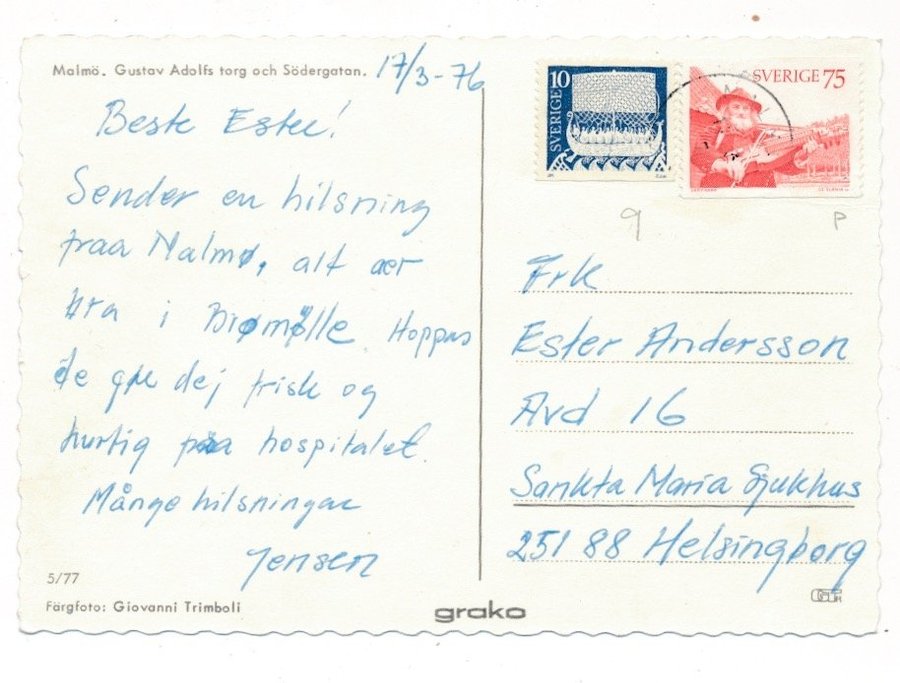 Malmö. Gustav Adolfs torg och Södergatan.
17/3-76
Beste Ester!
Sender en hilsning
fraa Malmø, alt aer
bra i Bromølle Hoppas
de gør dej frisk og
hurtig paa hospitalet.
Månge hilsningar
Jensen
5/77
Färgfoto: Giovanni Trimboli
grako
SVERIGE 10
SVERIGE 75
q
P
Frk
Ester Andersson
Avd 16
Sankta Maria Sjukhus
251 88 Helsingborg